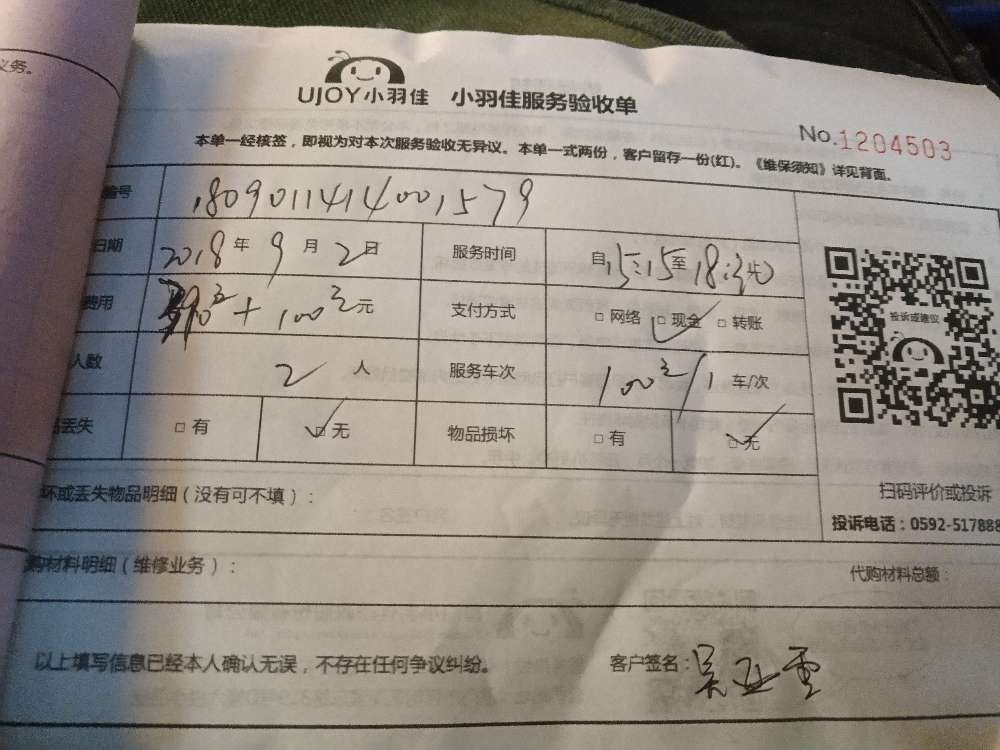 义务。
UJOY小羽佳 小羽佳服务验收单
No.1204503
本单一经核签，即视为对本次服务验收无异议。本单一式两份，客户留存一份(红)。《维保须知》详见背面。
编号 1809011414001579
日期 2018年9月2日 服务时间 自15:15至18:
费用 +100元 支付方式 □网络 □现金 □转账
人数 2人 服务车次 100元/1车/次
丢失 □有 □无 物品损坏 □有 □无
投诉或建议
扫码评价或投诉
坏或丢失物品明细（没有可不填）：
投诉电话：0592-517888
购材料明细（维修业务）：
代购材料总额：
以上填写信息已经本人确认无误，不存在任何争议纠纷。 客户签名：吴亚